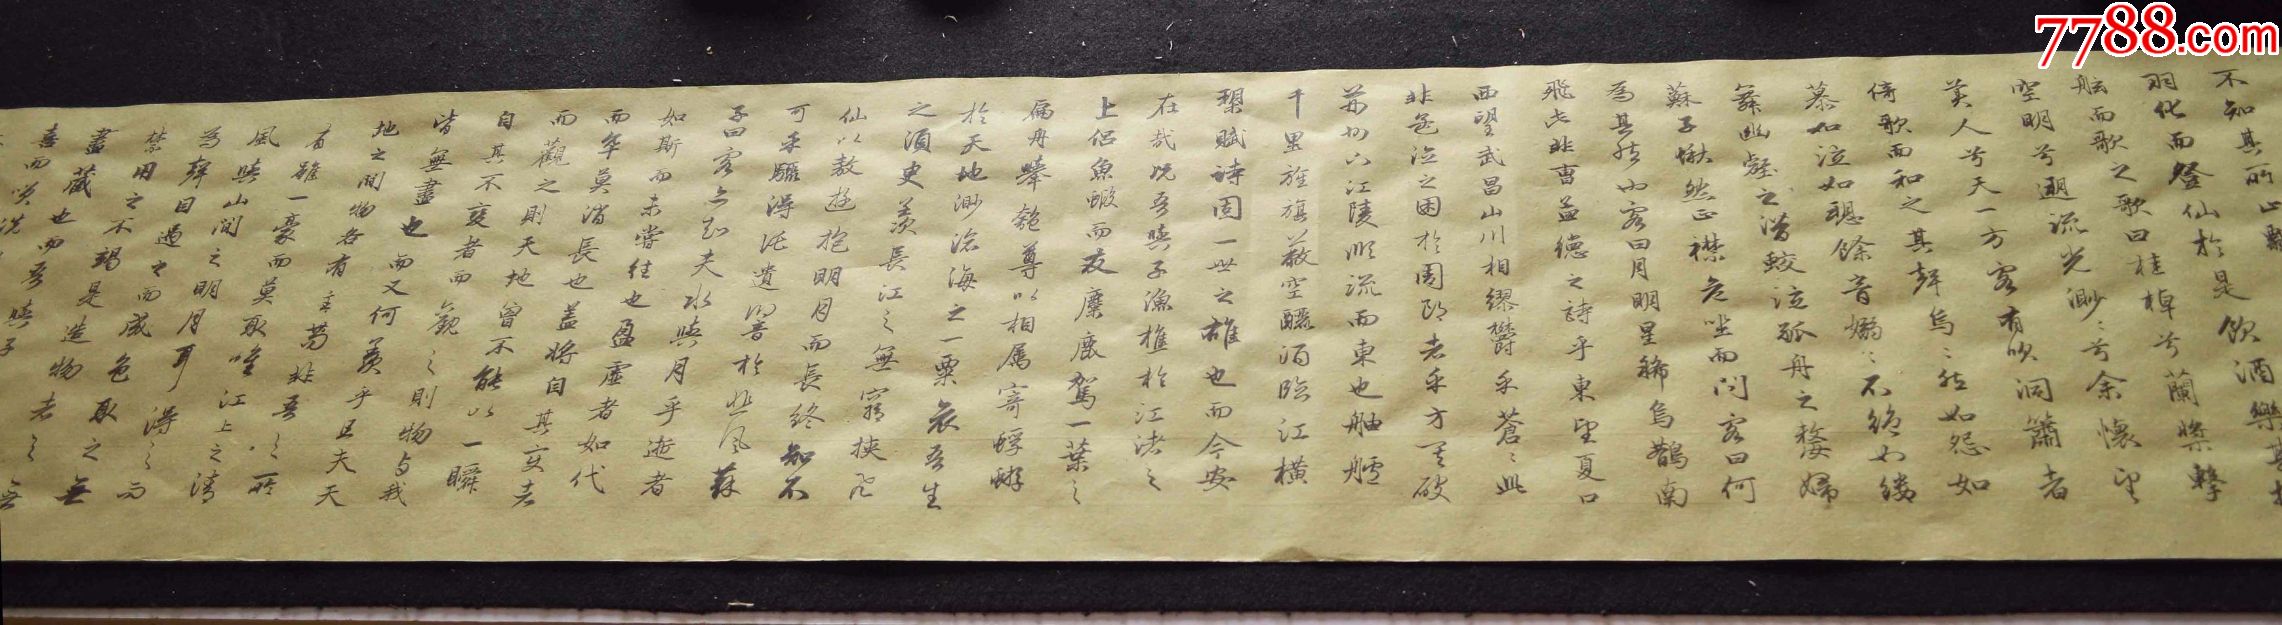 7788.com
不知其所止飄
羽化而登仙於是飲酒樂甚扣
舷而歌之歌曰桂棹兮蘭槳擊
空明兮遡流光渺〻兮余懷望
美人兮天一方客有吹洞簫者
倚歌而和之其聲烏〻然如怨如
慕如泣如聴餘音嫋〻不絶如縷
舞幽壑之潜蛟泣孤舟之嫠婦
蘇子愀然正襟危坐而问客曰何
為其然也客曰月明星稀烏鵲南
飛此非曹孟德之詩乎東望夏口
西望武昌山川相繆欝乎蒼〻此
非孟德之困於周郎者乎方其破
荊州下江陵順流而東也舳艫
千里旌旗蔽空釃酒臨江橫
槊賦詩固一世之雄也而今安
在哉况吾與子漁樵於江渚之
上侣魚蝦而友麋鹿駕一葉之
扁舟舉匏尊以相属寄蜉蝣
於天地渺滄海之一粟哀吾生
之須臾羨長江之無窮挾飛
仙以敖遊抱明月而長終知不
可乎驟得託遺響於悲風蘇
子曰客亦知夫水與月乎逝者
如斯而未嘗往也盈虚者如代
而卒莫消長也盖将自其变者
而觀之則天地曾不能以一瞬
自其不變者而觀之則物与我
皆無盡也而又何羨乎且夫天
地之间物各有主苟非吾之所
有雖一豪而莫取唯江上之清
風與山间之明月耳得之而
為聲目遇之而成色取之無
禁用之不竭是造物者之無
盡藏也而吾與子
喜而笑洗